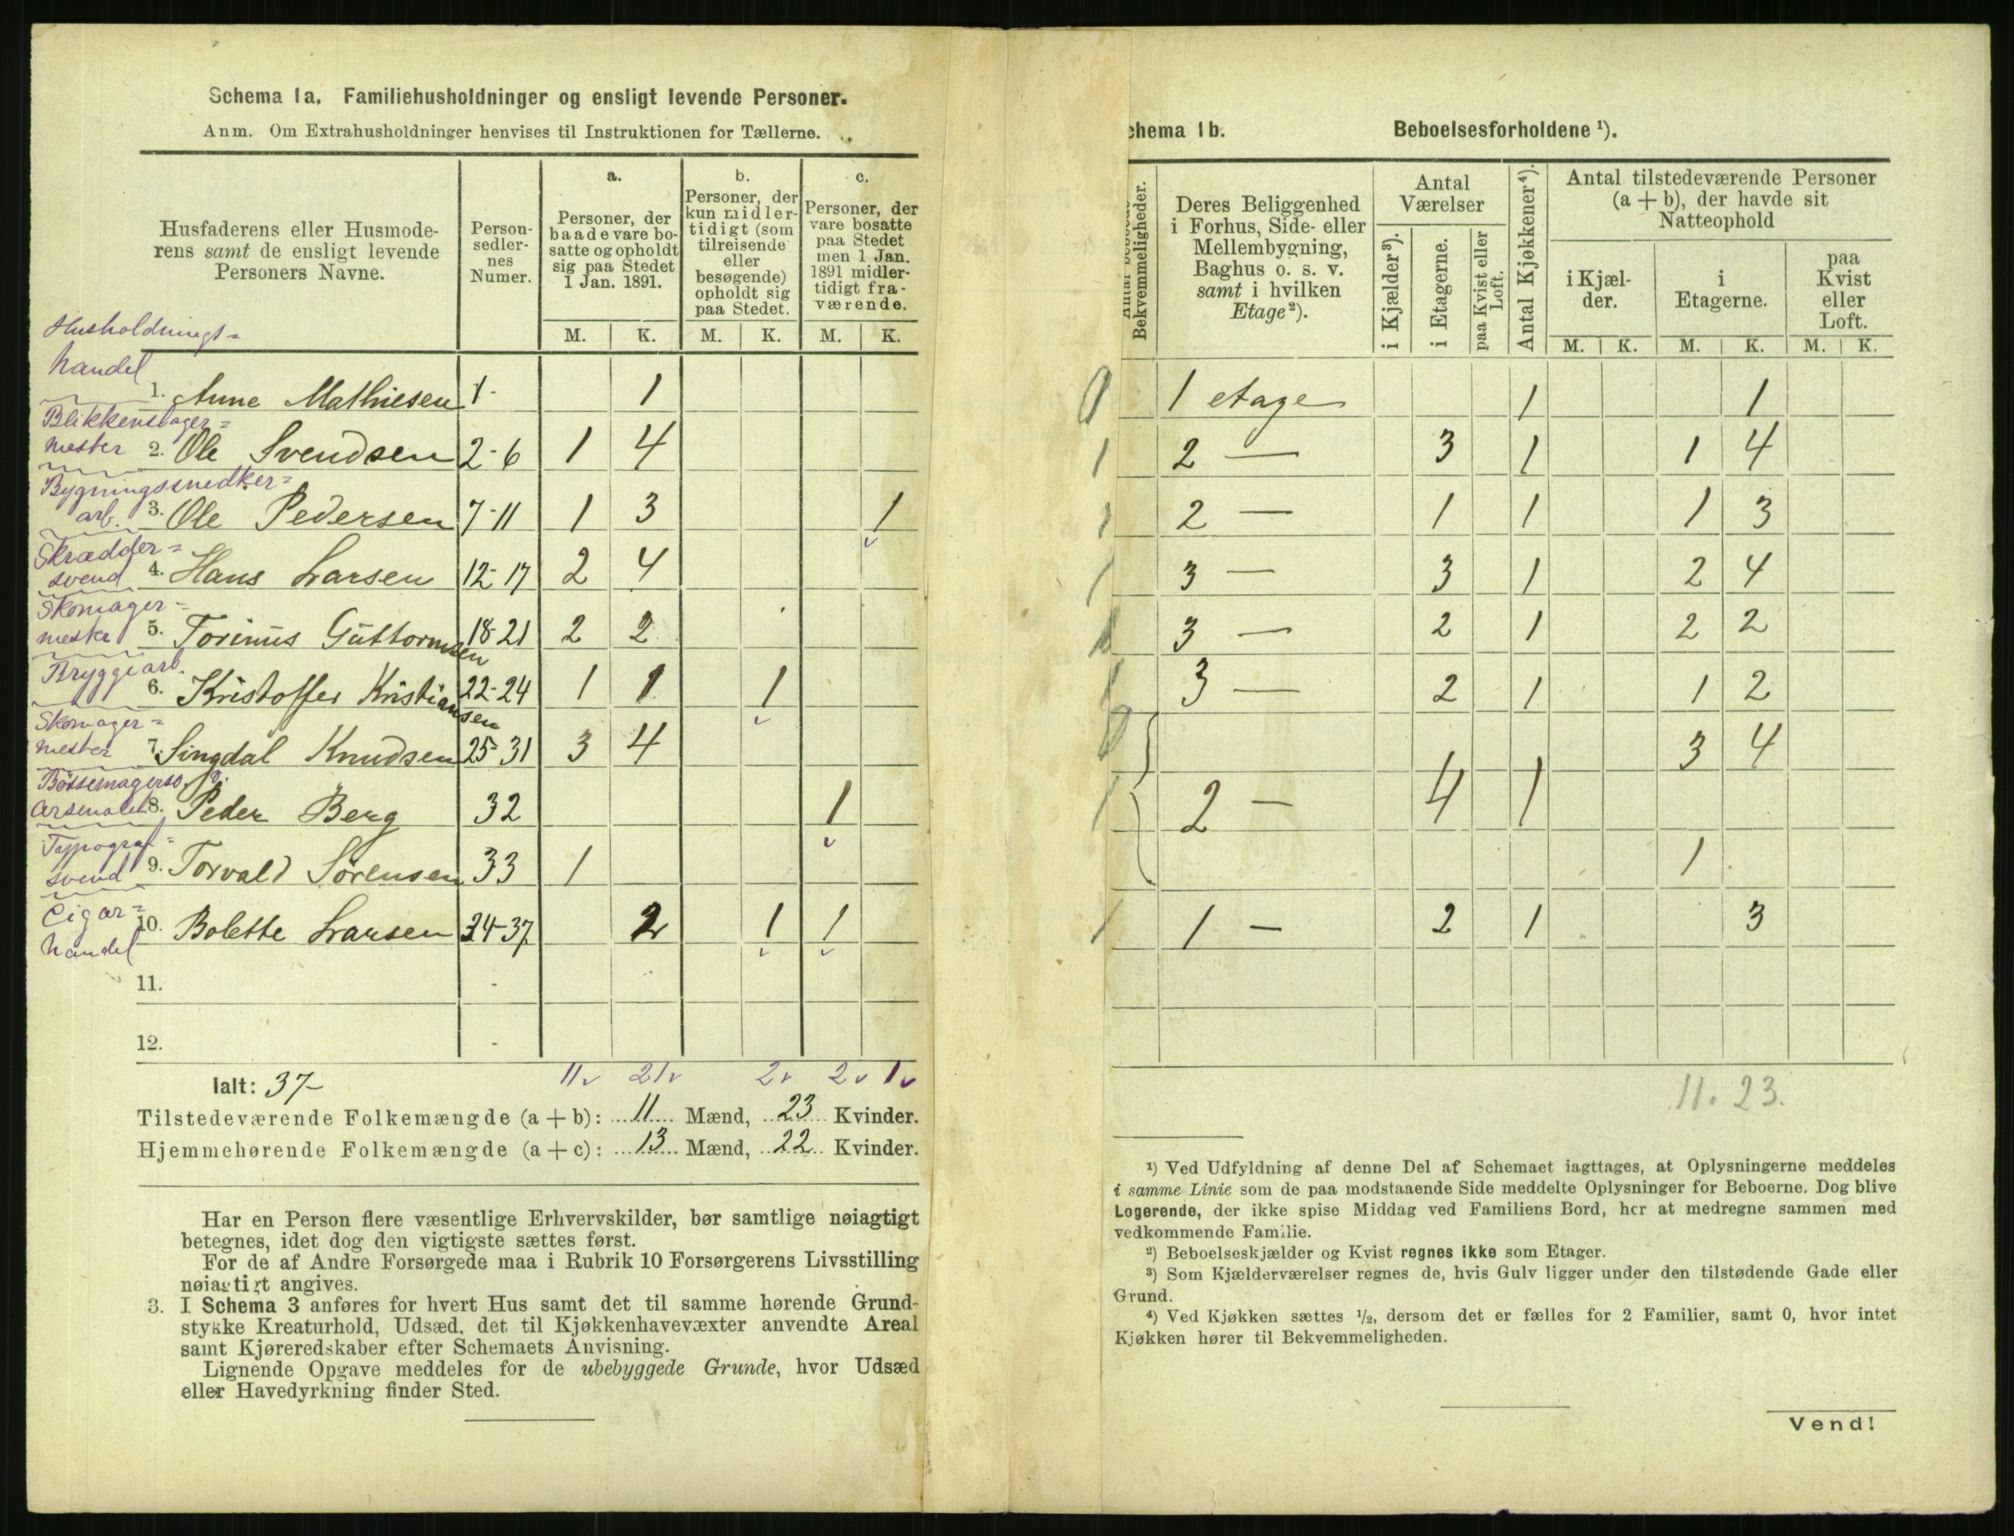 Schema 1a. Familiehusholdninger og ensligt levende Personer.
Anm. Om Extrahusholdninger henvises til Instruktionen for Tællerne.
Husfaderens eller Husmode-
rens samt de ensligt levende
Personers Navne.
Person-
sedler-
nes
Numer.
a.
Personer, der
baade vare bo-
satte og opholdt
sig paa Stedet
1 Jan. 1891.
b.
Personer, der
kun midler-
tidigt (som
tilreisende
eller
besøgende)
opholdt sig
paa Stedet.
c.
Personer, der
vare bosatte
paa Stedet
men 1 Jan.
1891 midler-
tidigt fra-
værende.
M. K. M. K. M. K.
Husholdnings=
handel
1. Anne Mathiesen 1- 1
Blikkenslager=
mester 2. Ole Svendsen 2-6 1 4
Bygningssnedker=
arb. 3. Ole Pedersen 7-11 1 3 1
Skrædder=
svend 4. Hans Larsen 12-17 2 4
Skomager=
mester 5. Torinus Guttormsen 18-21 2 2
Bryggearb.
6. Kristoffer Kristiansen 22-24 1 1 1
Skomager=
mester 7. Singdal Knudsen 25-31 3 4
Bössemagersv.
Arsenalet 8. Peder Berg 32 1
Typograf=
svend 9. Torvald Sörensen 33 1
Cigar=
handel 10. Bolette Larsen 34-37 2 1 1
11.
12.
Ialt: 37- 11 21 2 2 1
Tilstedeværende Folkemængde (a + b): 11 Mænd, 23 Kvinder.
Hjemmehørende Folkemængde (a + c): 13 Mænd, 22 Kvinder.
Har en Person flere væsentlige Erhvervskilder, bør samtlige nøiagtigt
betegnes, idet dog den vigtigste sættes først.
For de af Andre Forsørgede maa i Rubrik 10 Forsørgerens Livsstilling
nøiagtigt angives.
3. I Schema 3 anføres for hvert Hus samt det til samme hørende Grund-
stykke Kreaturhold, Udsæd, det til Kjøkkenhavevæxter anvendte Areal
samt Kjøreredskaber efter Schemaets Anvisning.
Lignende Opgave meddeles for de ubebyggede Grunde, hvor Udsæd
eller Havedyrkning finder Sted.
chema 1b. Beboelsesforholdene ¹).
Bekvemmeligheder.
Deres Beliggenhed
i Forhus, Side- eller
Mellembygning,
Baghus o. s. v.
samt i hvilken
Etage²).
Antal
Værelser
i Kjælder³).
i Etagerne.
paa Kvist eller
Loft.
Antal Kjøkkener⁴).
Antal tilstedeværende Personer
(a + b), der havde sit
Natteophold
i Kjæl-
der.
i
Etagerne.
paa
Kvist
eller
Loft.
M. K. M. K. M. K.
0 1 etage 1 1
1 2 — 3 1 1 4
1 2 — 1 1 1 3
1 3 — 3 1 2 4
1 3 — 2 1 2 2
1 3 — 2 1 1 2
3 4
1 2 — 4 1
1
1 1 — 2 1 3
11. 23.
¹) Ved Udfyldning af denne Del af Schemaet iagttages, at Oplysningerne meddeles
i samme Linie som de paa modstaaende Side meddelte Oplysninger for Beboerne. Dog blive
Logerende, der ikke spise Middag ved Familiens Bord, her at medregne sammen med
vedkommende Familie.
²) Beboelseskjælder og Kvist regnes ikke som Etager.
³) Som Kjælderværelser regnes de, hvis Gulv ligger under den tilstødende Gade eller
Grund.
⁴) Ved Kjøkken sættes ½, dersom det er fælles for 2 Familier, samt 0, hvor intet
Kjøkken hører til Bekvemmeligheden.
Vend!